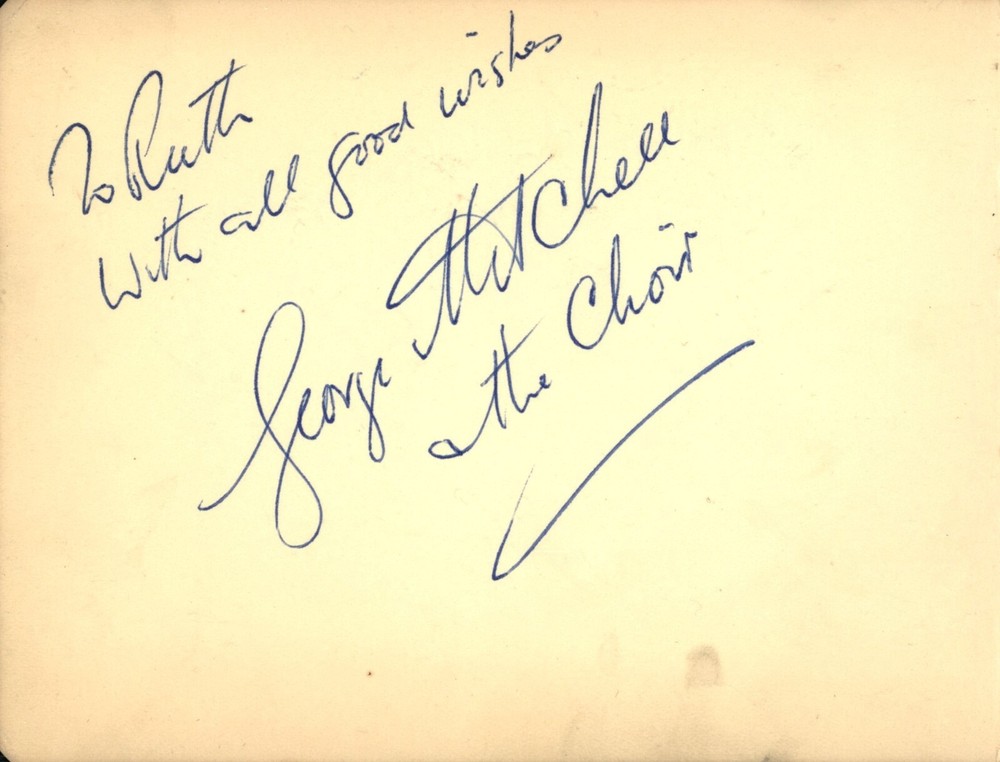 To Ruth
With all good wishes
George Mitchell
& the Choir